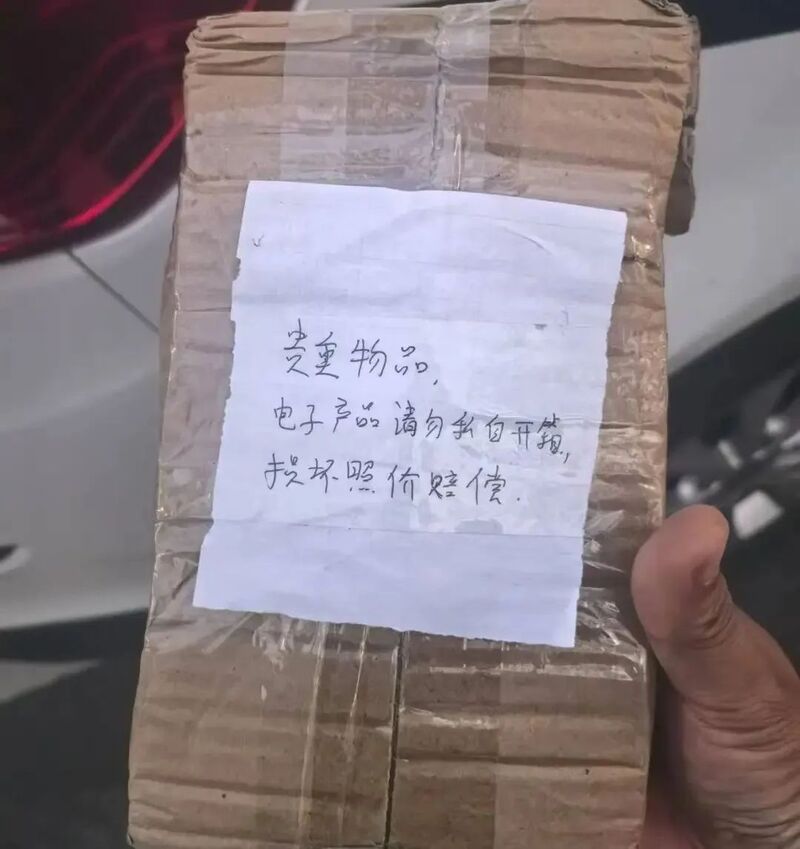 贵重物品,
电子产品请勿私自开箱,
损坏照价赔偿.